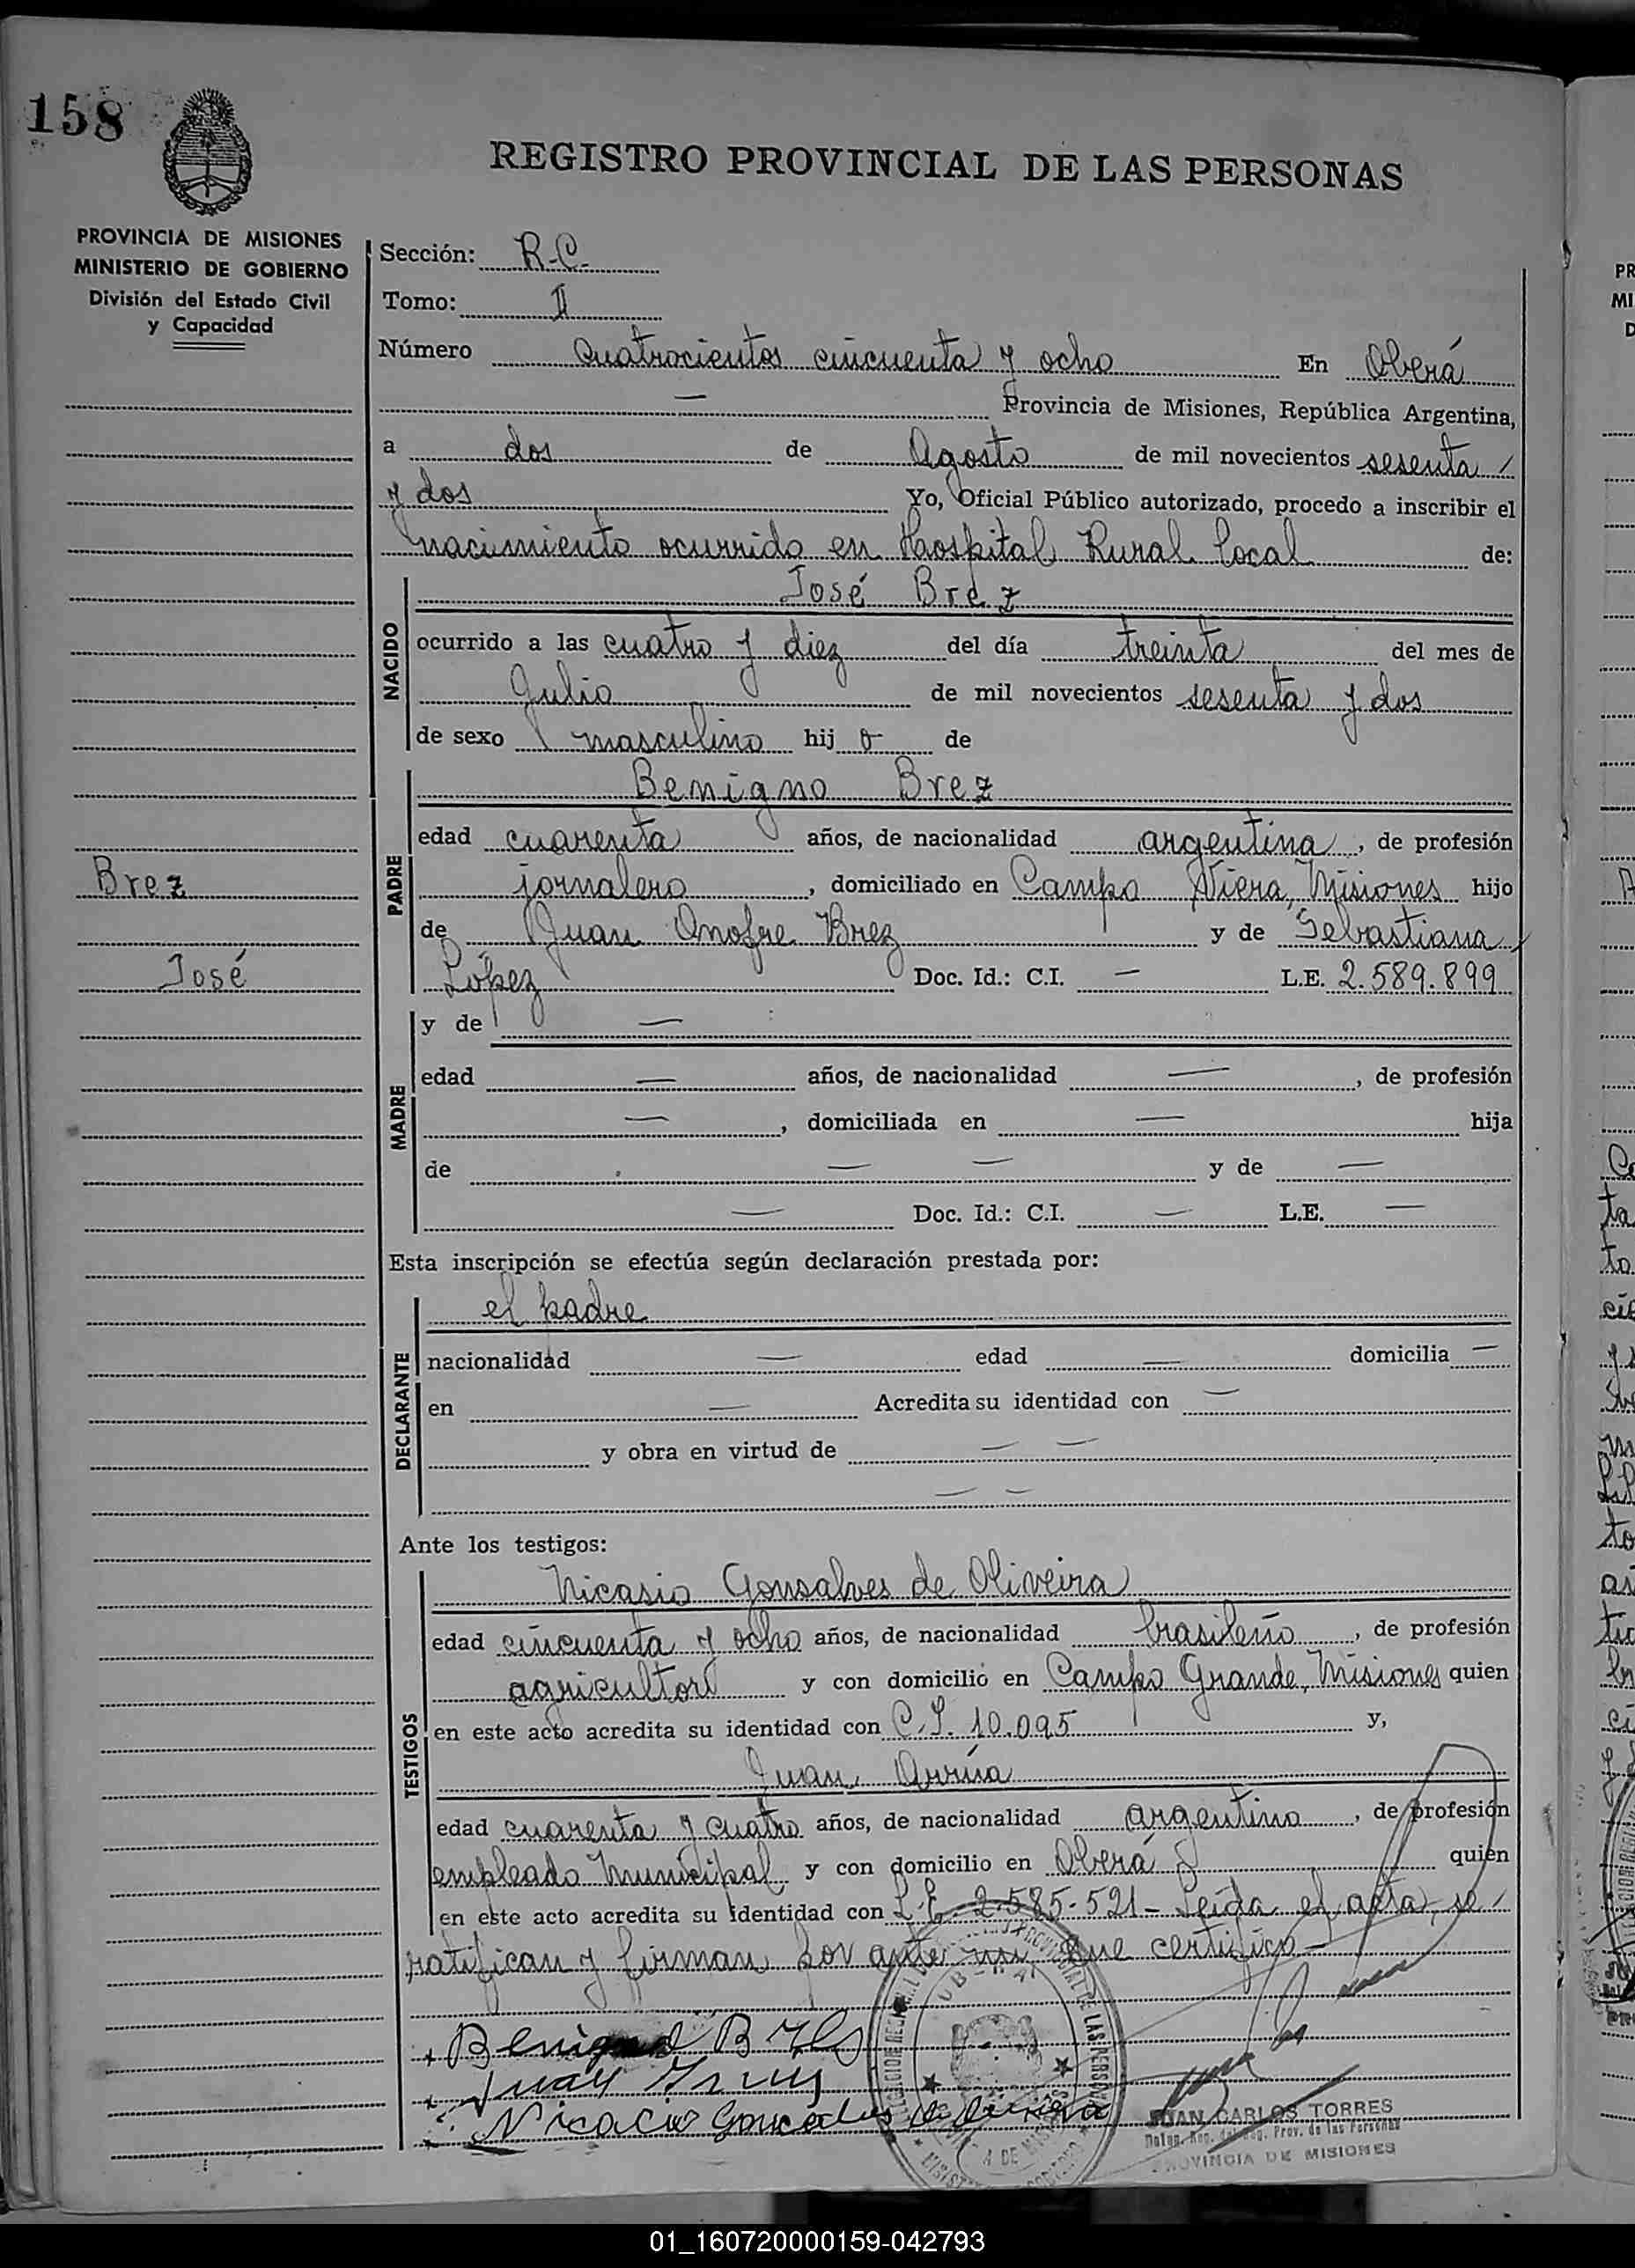 158
REGISTRO PROVINCIAL DE LAS PERSONAS
PROVINCIA DE MISIONES
MINISTERIO DE GOBIERNO
División del Estado Civil
y Capacidad
Brez
José
Sección: R.C.
Tomo: II
Número Cuatrocientos cincuenta y ocho En Oberá
— Provincia de Misiones, República Argentina,
a dos de Agosto de mil novecientos sesenta /
y dos Yo, Oficial Público autorizado, procedo a inscribir el
nacimiento ocurrido en Hospital Rural local de:
NACIDO
José Brez
ocurrido a las cuatro y diez del día treinta del mes de
Julio de mil novecientos sesenta y dos
de sexo masculino hij o de
PADRE
Benigno Brez
edad cuarenta años, de nacionalidad argentina, de profesión
jornalero, domiciliado en Campo Viera, Misiones hijo
de Juan Onofre Brez y de Sebastiana
López Doc. Id.: C.I. — L.E. 2.589.899
MADRE
y de —
edad — años, de nacionalidad —, de profesión
—, domiciliada en — hija
de — — y de —
— Doc. Id.: C.I. — L.E. —
Esta inscripción se efectúa según declaración prestada por:
DECLARANTE
el padre
nacionalidad — edad — domicilia —
en — Acredita su identidad con —
y obra en virtud de — —
— —
Ante los testigos:
TESTIGOS
Nicasio Gonsalves de Oliveira
edad cincuenta y ocho años, de nacionalidad brasileño, de profesión
agricultor y con domicilio en Campo Grande, Misiones quien
en este acto acredita su identidad con C.I. 10.095 y,
Juan
edad cuarenta y cuatro años, de nacionalidad argentino, de profesión
empleado Municipal y con domicilio en Oberá quien
en este acto acredita su identidad con L.E. 2.585.521- Leída el acta, se
ratifican y firman por ante mi que certifico-
Benigno Brez
Juan
Nicacio
OBERA
JUAN CARLOS TORRES
Prov. de las Personas
PROVINCIA DE MISIONES
01_160720000159-042793